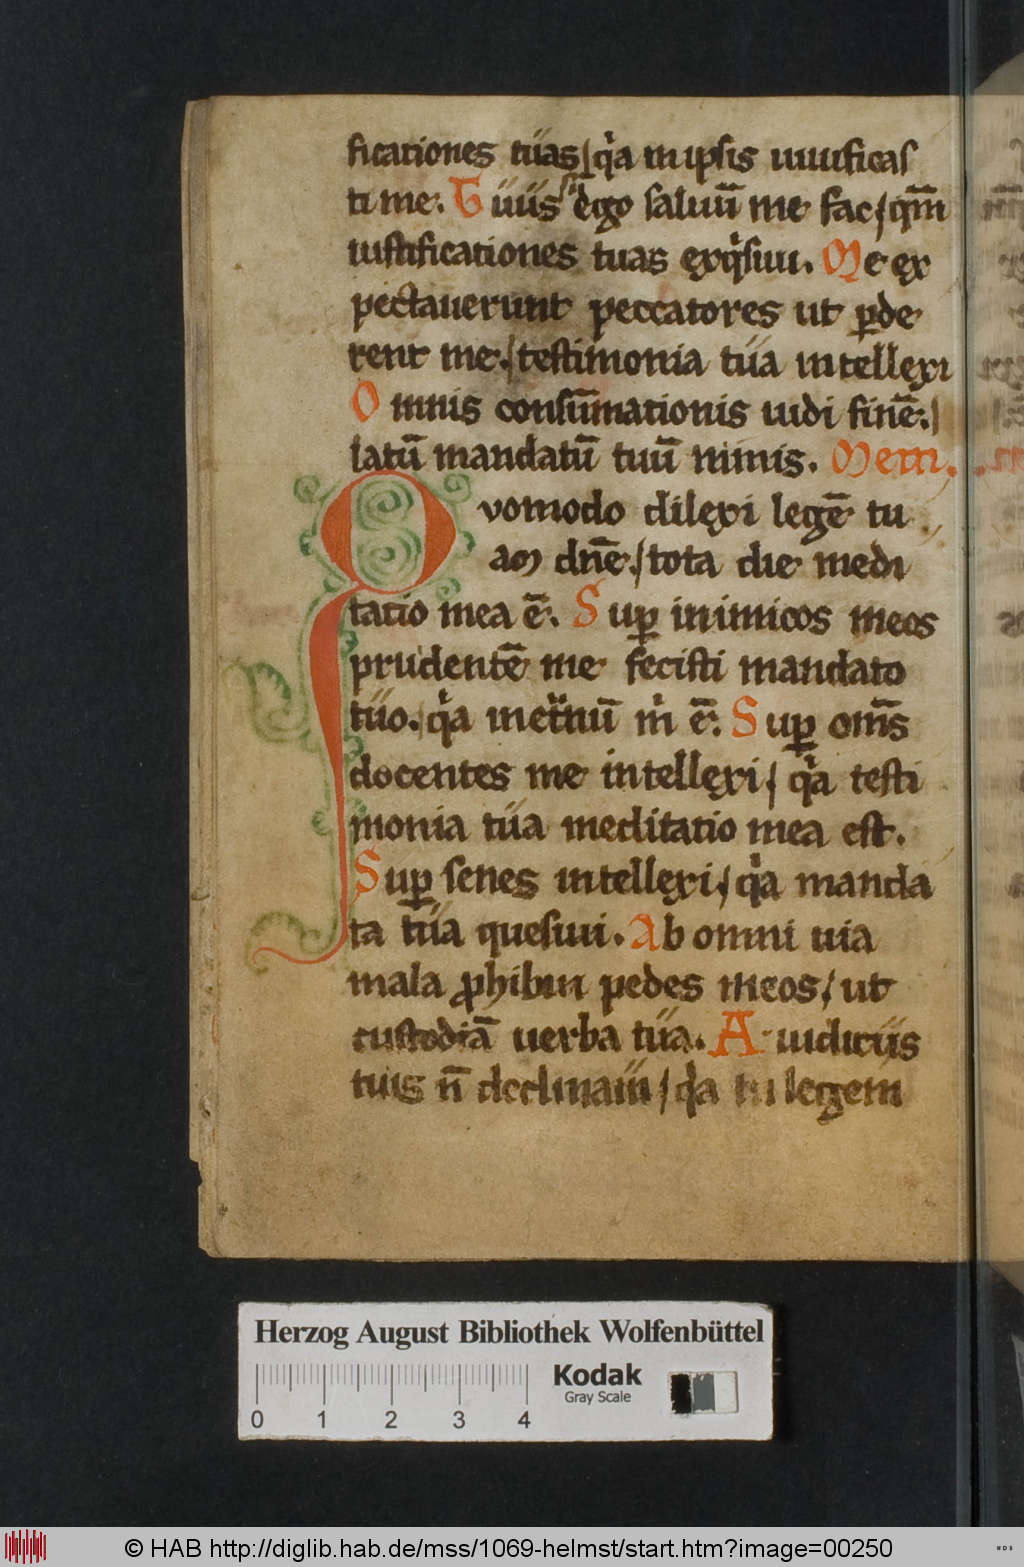 ficationes tuas / qͥa in ipsis uiuificas
ti me. Tuus sū ego saluū me fac / qm̄
iustificationes tuas exqͥsiui. Me ex
pectauerunt peccatores ut ꝑde
rent me. / testimonia tua intellexi
Omnis consūmationis uidi finē. /
latū mandatū tuū nimis. Mem.
Quomodo dilexi legē tu
am dn̄e. / tota die medi
tatio mea ē. Suꝑ inimicos meos
prudentē me fecisti mandato
tuo. / qͥa in et̄nū m̄ ē. Suꝑ om̄s
docentes me intellexi / qͥa testi
monia tua meditatio mea est.
Suꝑ senes intellexi / qͥa manda
ta tua quesiui. Ab omni uia
mala ꝓhibui pedes meos / ut
custodiā uerba tua. A iudiciis
tuis n̄ declinaui / qͥa tu legem
Herzog August Bibliothek Wolfenbüttel
0 1 2 3 4
Kodak
Gray Scale
© HAB http://diglib.hab.de/mss/1069-helmst/start.htm?image=00250